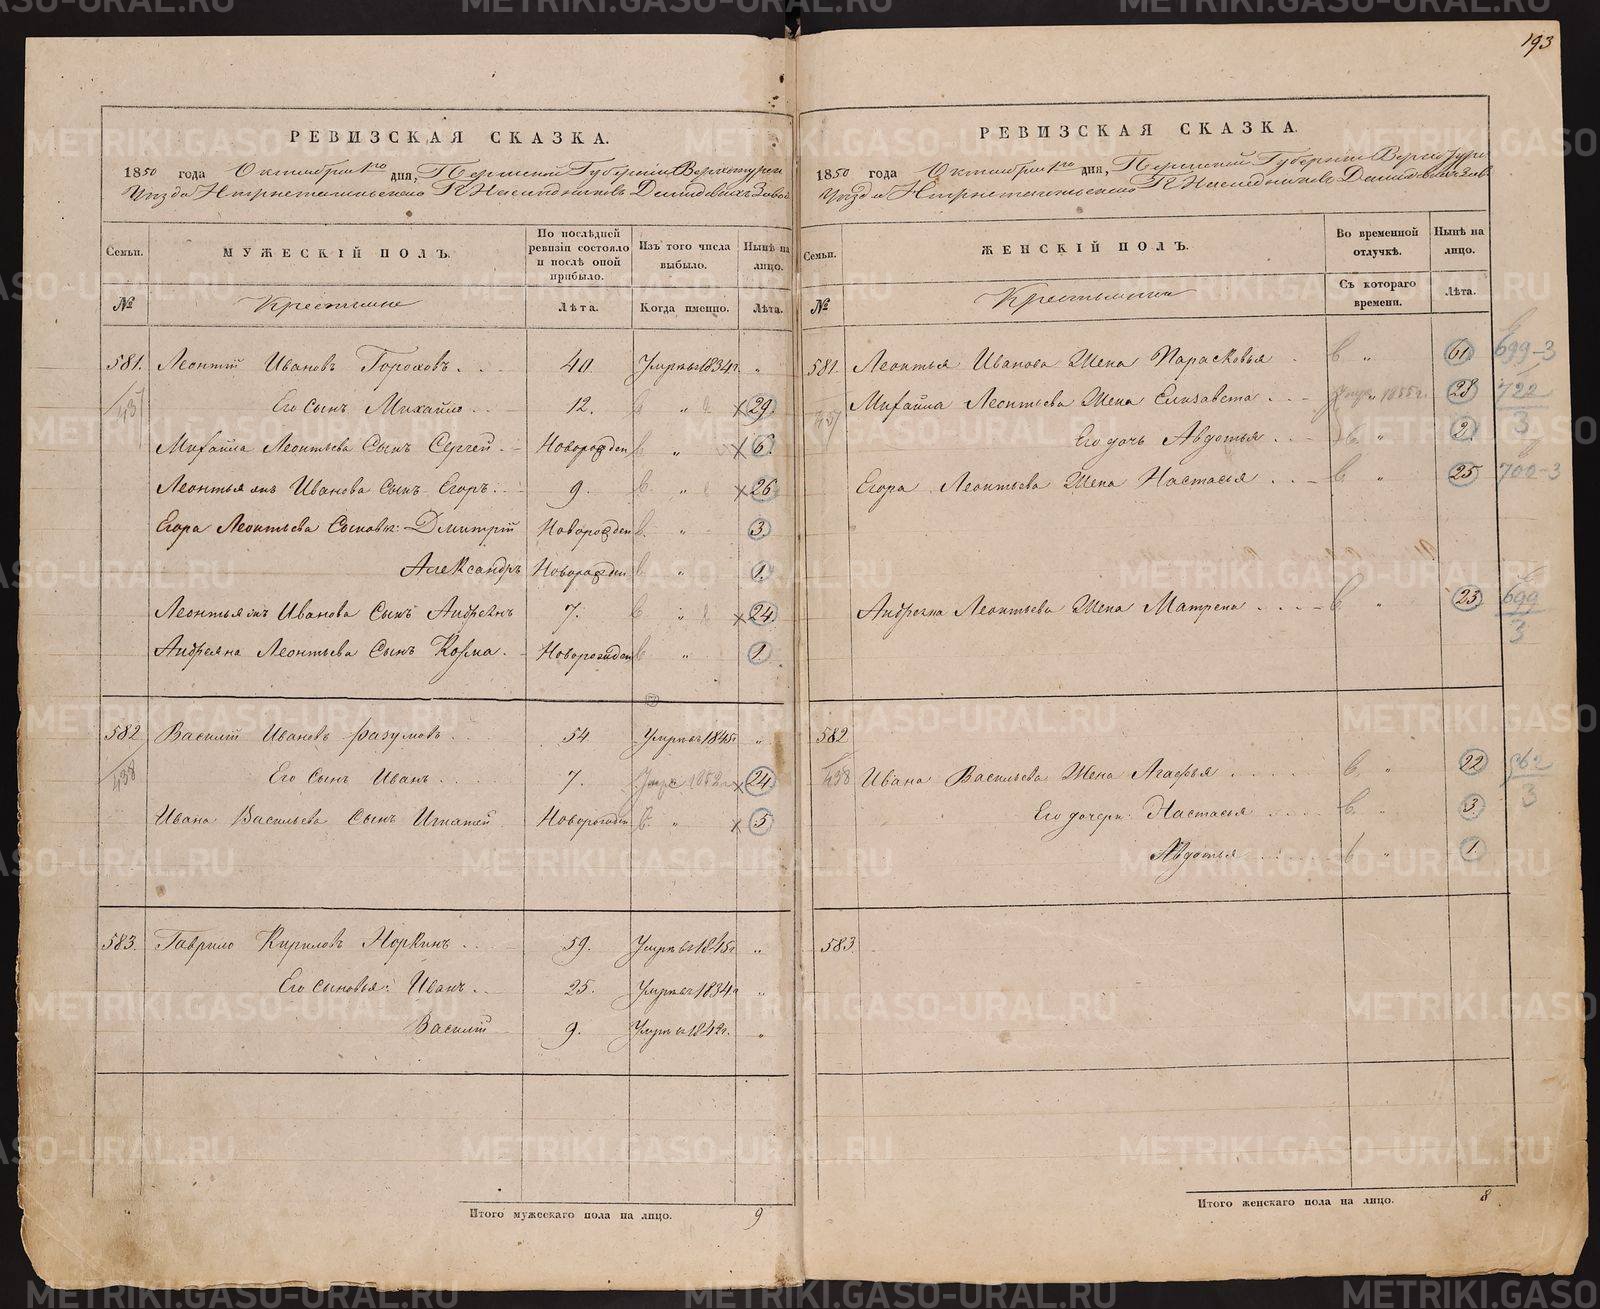 193
РЕВИЗСКАЯ СКАЗКА.
1850 года Октября 1го дня, Пермской Губернии Верхотурск
Уезда Нижнетагильского Гг. Наследниковъ Демидовыхъ Завод
Семьи.
МУЖЕСКІЙ ПОЛЪ.
По послѣдней ревизіи состояло и послѣ оной прибыло.
Изъ того числа выбыло.
Нынѣ на лицо.
№
Крестьяне
Лѣта.
Когда именно.
Лѣта.
581. Леонтій Ивановъ Гороховъ. 40. Умръ въ 1834г. "
437 Его Сынъ Михайло 12. " 29.
Михайла Леонтьева Сынъ Сергей Новорожден " 6.
Леонтья же Иванова Сынъ Егоръ 9. " 26
Егора Леонтьева Сыновья: Дмитрій Новорожден " 3.
Александръ Новорожден " 1.
Леонтья же Иванова Сынъ Андреянъ 7. " 24
Андреяна Леонтьева Сынъ Козма Новорожден " 1.
582 Василій Ивановъ Разумовъ 54. Умръ въ 1845г "
438 Его Сынъ Иванъ 7. 24
Ивана Васильева Сынъ Игнатей Новорожден " 5
583. Гаврило Кириловъ Норкинъ 59. Умръ въ 1845г "
Его сыновья: Иванъ 25. Умръ въ 1834г "
Василій 9. Умръ въ 1842г. "
Итого мужескаго пола на лицо. 9
РЕВИЗСКАЯ СКАЗКА.
1850 года Октября 1го дня, Пермской Губерніи Верхотурс
Уезда Нижнетагильского Гг. Наследниковъ Демидовыхъ Зав.
Семьи.
ЖЕНСКІЙ ПОЛЪ.
Во временной отлучкѣ.
Нынѣ на лицо.
№
Крестьянки
Съ котораго времени.
Лѣта.
581. Леонтья Иванова Жена Парасковья " 61. 699-3
437 Михайла Леонтьева Жена Елизавета 1855г. 28 722/3
Его дочь Авдотья " 2.
Егора Леонтьева Жена Настасья " 25 700-3
Андреяна Леонтьева Жена Матрена " 23 699/3
582
438 Ивана Васильева Жена Агафья " 22
Его дочери: Настасья " 3.
Авдотья " 1.
583.
Итого женскаго пола на лицо. 8
METRIKI.GASO-URAL.RU